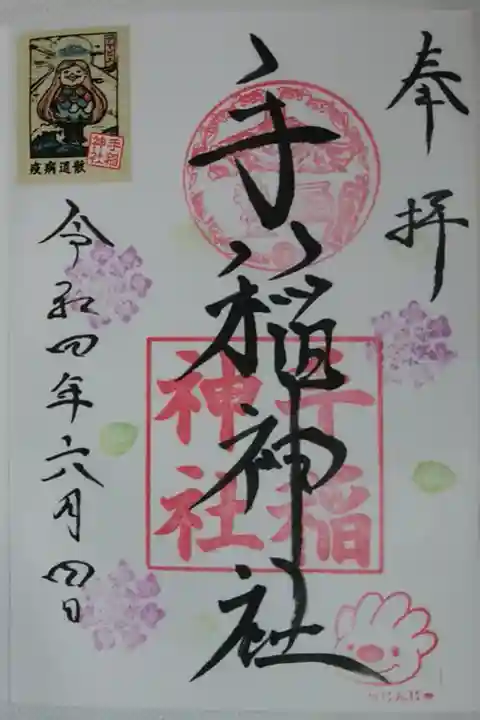 奉拝
手稲神社
手稲
神社
令和四年六月四日
手稲
神社
疫病退散